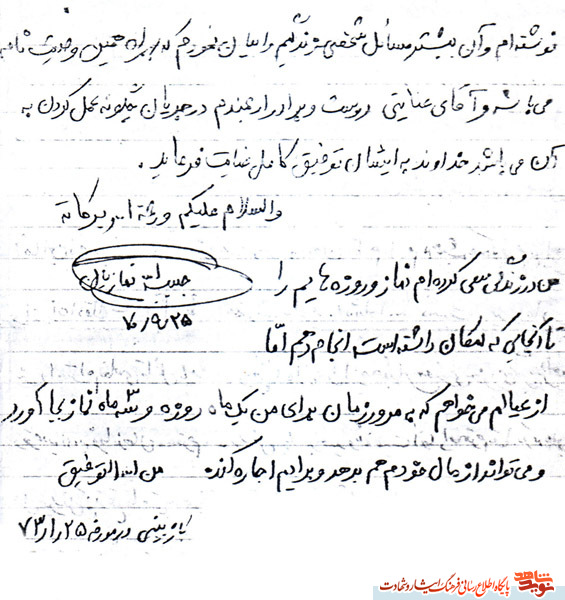 نوشته‌ام و آن بیشتر مسائل شخصی زندگیم را بیان نمودم که همراه همین وصیت نامه
می‌باشد و آقای عنایتی دوست و برادر ارجمندم در جریان چگونه عمل کردن به
آن می‌باشد خداوند به ایشان توفیق کامل عنایت فرماید.
والسلام علیکم و رحمة الله و برکاته
من در زندگی سعی کرده‌ام نماز و روزه‌هایم را
حبیب الله
۲۵/۹/
تا آنجایی که امکان داشته است انجام دهم امّا
از عیالم می‌خواهم که به مرور زمان برای من یک ماه روزه و سه ماه نماز بجا آورد
و می‌تواند از مال خودم هم بدهد و برایم اجاره کند. من الله التوفیق
بازبینی در مورخه ۲۵ر۱ر۷۳
نوید شاهد
پایگاه اطلاع رسانی فرهنگ ایثار و شهادت